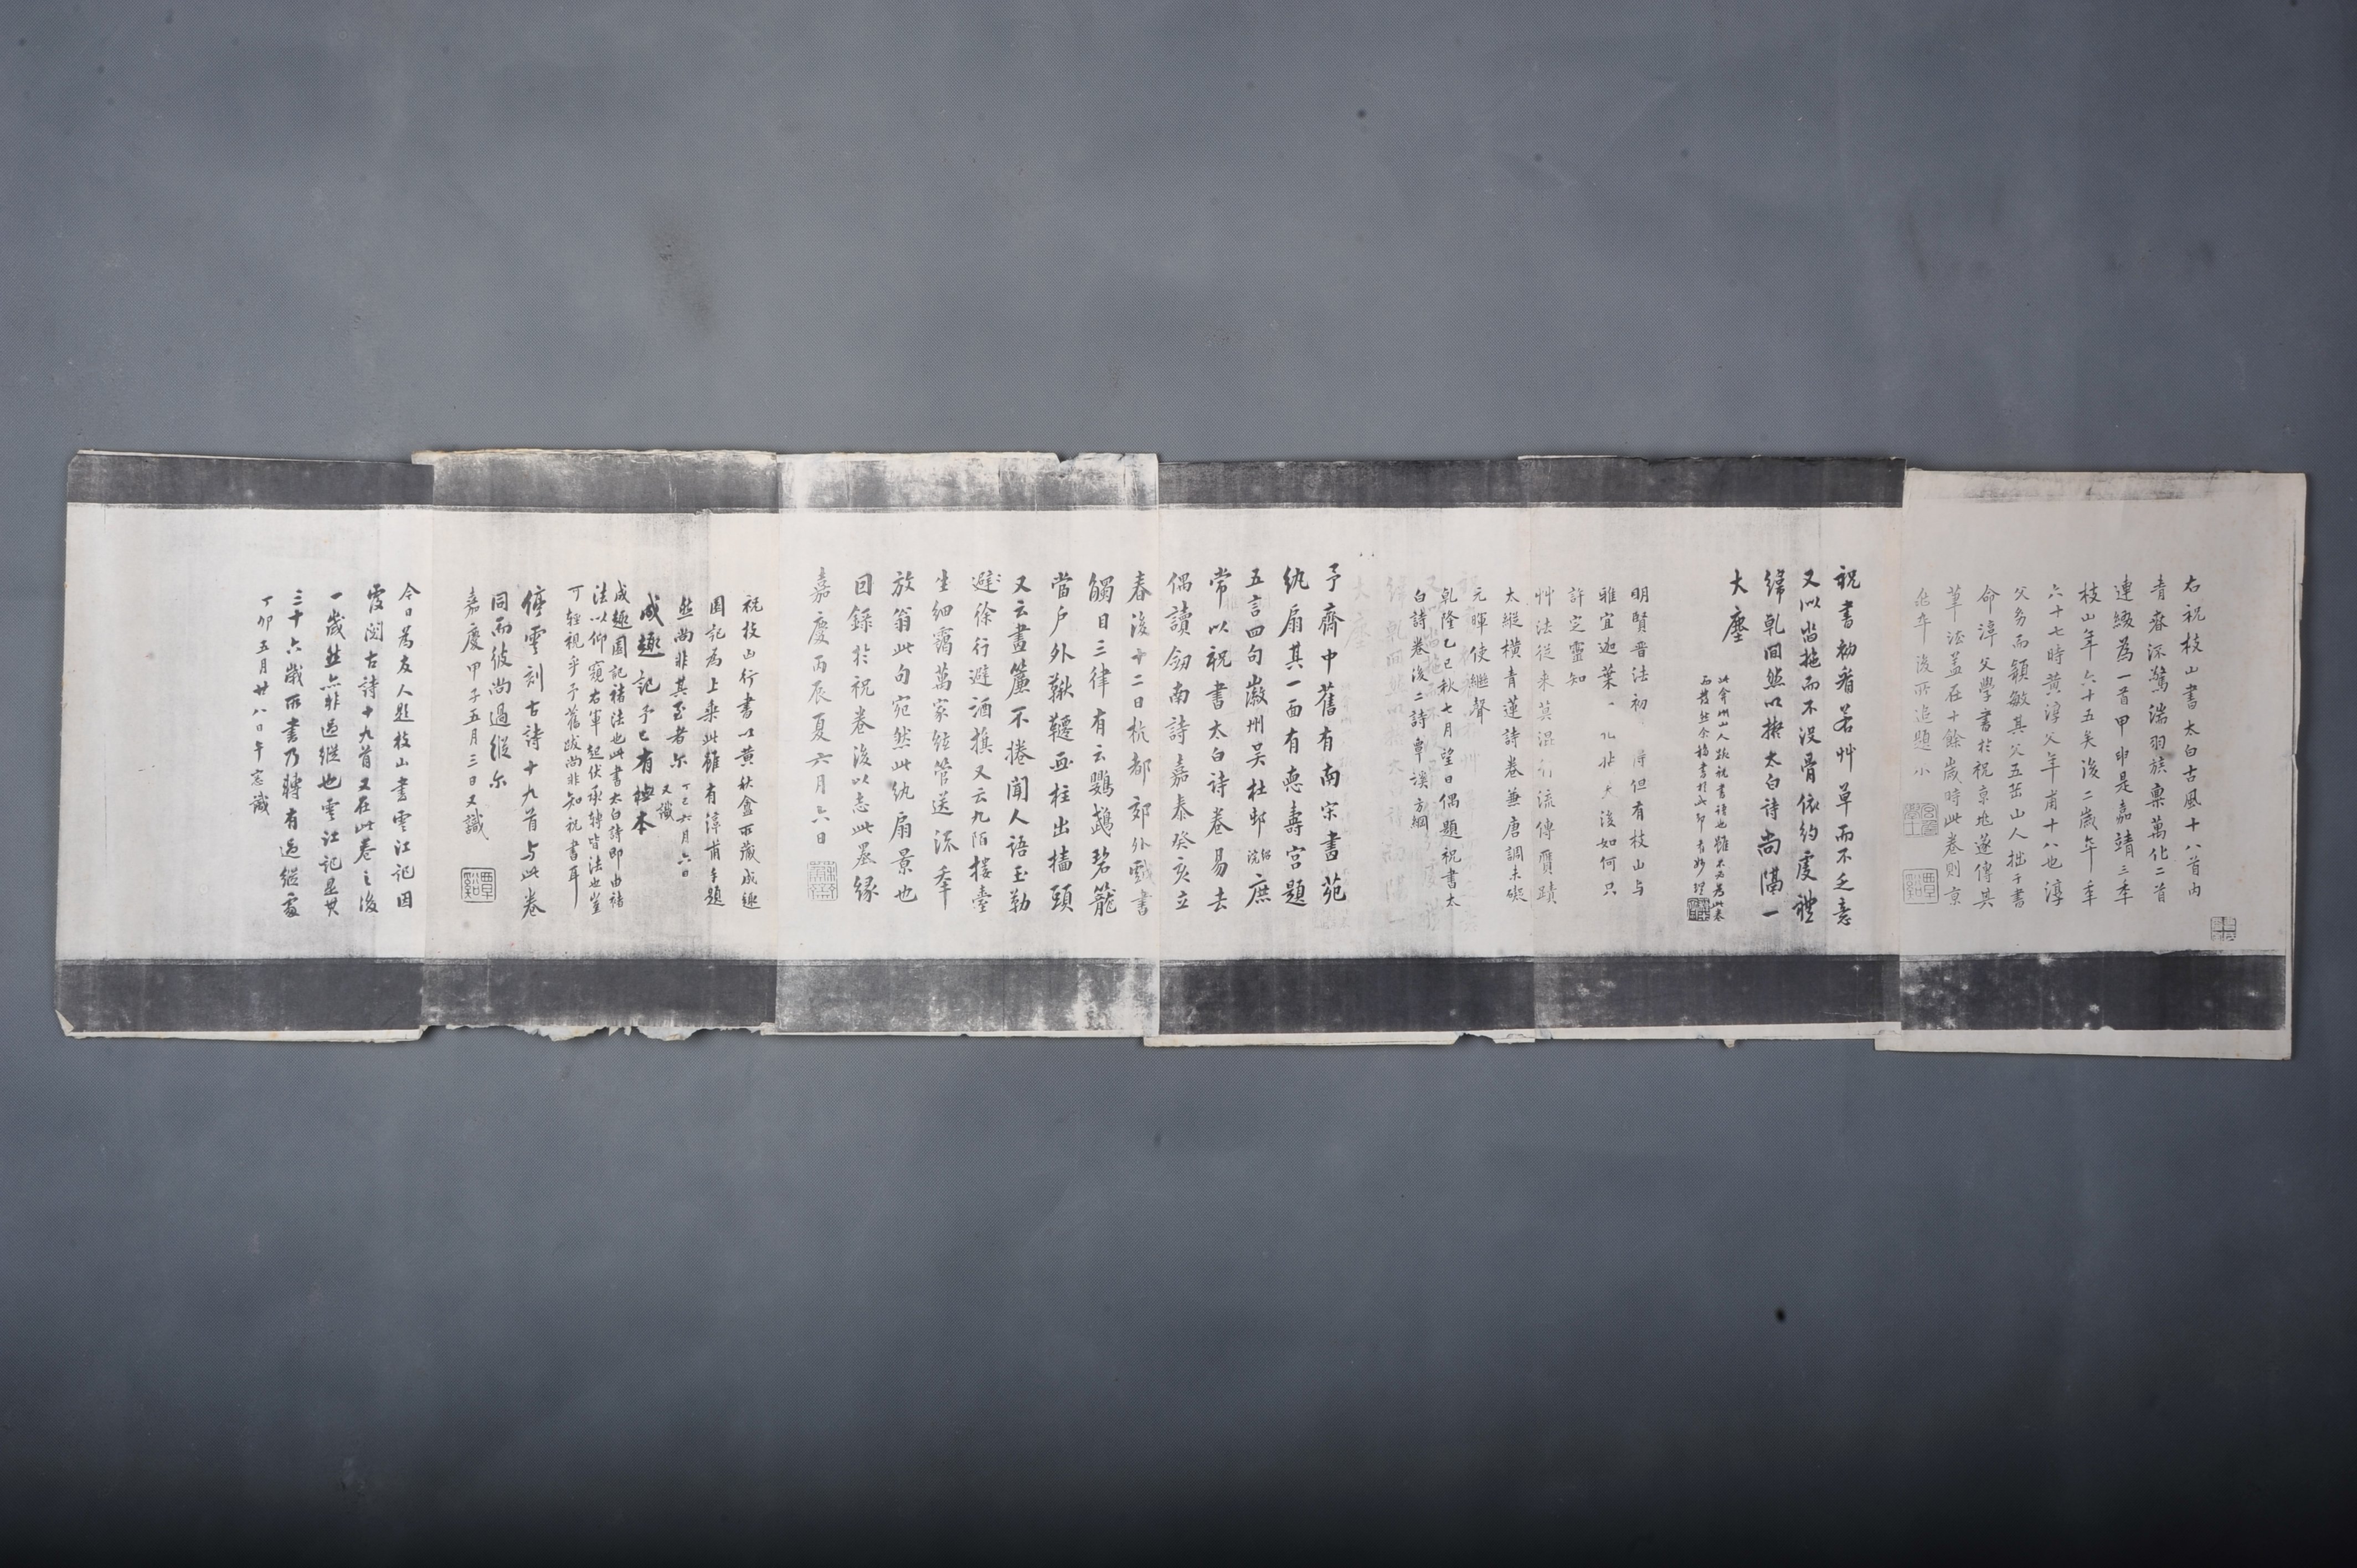 右祝枝山書太白古風十八首內
青春流驚湍羽族稟萬化二首
連綴為一首甲申是嘉靖三年
枝山年六十五矣後二歲年
六十七時黃淳父年甫十八也淳
父多而穎敏其父五岳山人拙于書
命淳父學書於祝京兆遂傳其
草法蓋在十餘歲時此卷則京
兆卒後所追題
祝書初看若艸草而不乏意
又似沓拖而不沒骨依約虔禮
緯乾間然以擬太白詩尚隔一
大塵
此弇州山人跋祝書詩也雖不必為此卷
明賢晉法初 得但有枝山与
雅宜迦葉 後如何只
許定靈知
艸法從來莫混 流傳贋蹟
太縱橫青蓮詩卷兼唐調未礙
元暉使繼聲
乾隆乙巳秋七月望日偶題祝書太
白詩卷後二詩 覃谿方綱
予齋中舊有南宋書苑
紈扇其一面有慈壽宮題
五言四句徽州吳杜邨 紹浣 庶
常以祝書太白詩卷易去
偶讀劍南詩嘉泰癸亥立
春後十二日杭都郊外戲書
觸目三律有云鸚鵡碧籠
當戶外鞦韆画柱出墻頭
又云畫簾不捲聞人語玉勒
避徐行避酒旗又云九陌樓臺
生細靄萬家絃管送流年
放翁此句宛然此紈扇景也
因錄於祝卷後以志此墨緣
嘉慶丙辰夏六月六日
祝枝山行書以黃秋盦所藏成趣
園記為上乘此雖有淳甫手題
然尚非其至者尔 丁巳六月六日
又識
成趣記予已有橅本
成趣園記褚法也此書太白詩即由褚
法以仰窺右軍起伏承轉皆法也豈
可輕視乎予舊跋尚非知祝書耳
停雲刻古詩十九首与此卷
同而彼尚過縱尔
嘉慶甲子五月三日又識
覃谿
今日為友人題枝山書雲江記因
覆閱古詩十九首又在此卷之後
一歲然亦非過縱也雲江記是其
三十六歲所書乃轉有過縱處
丁卯五月廿八日午窗識